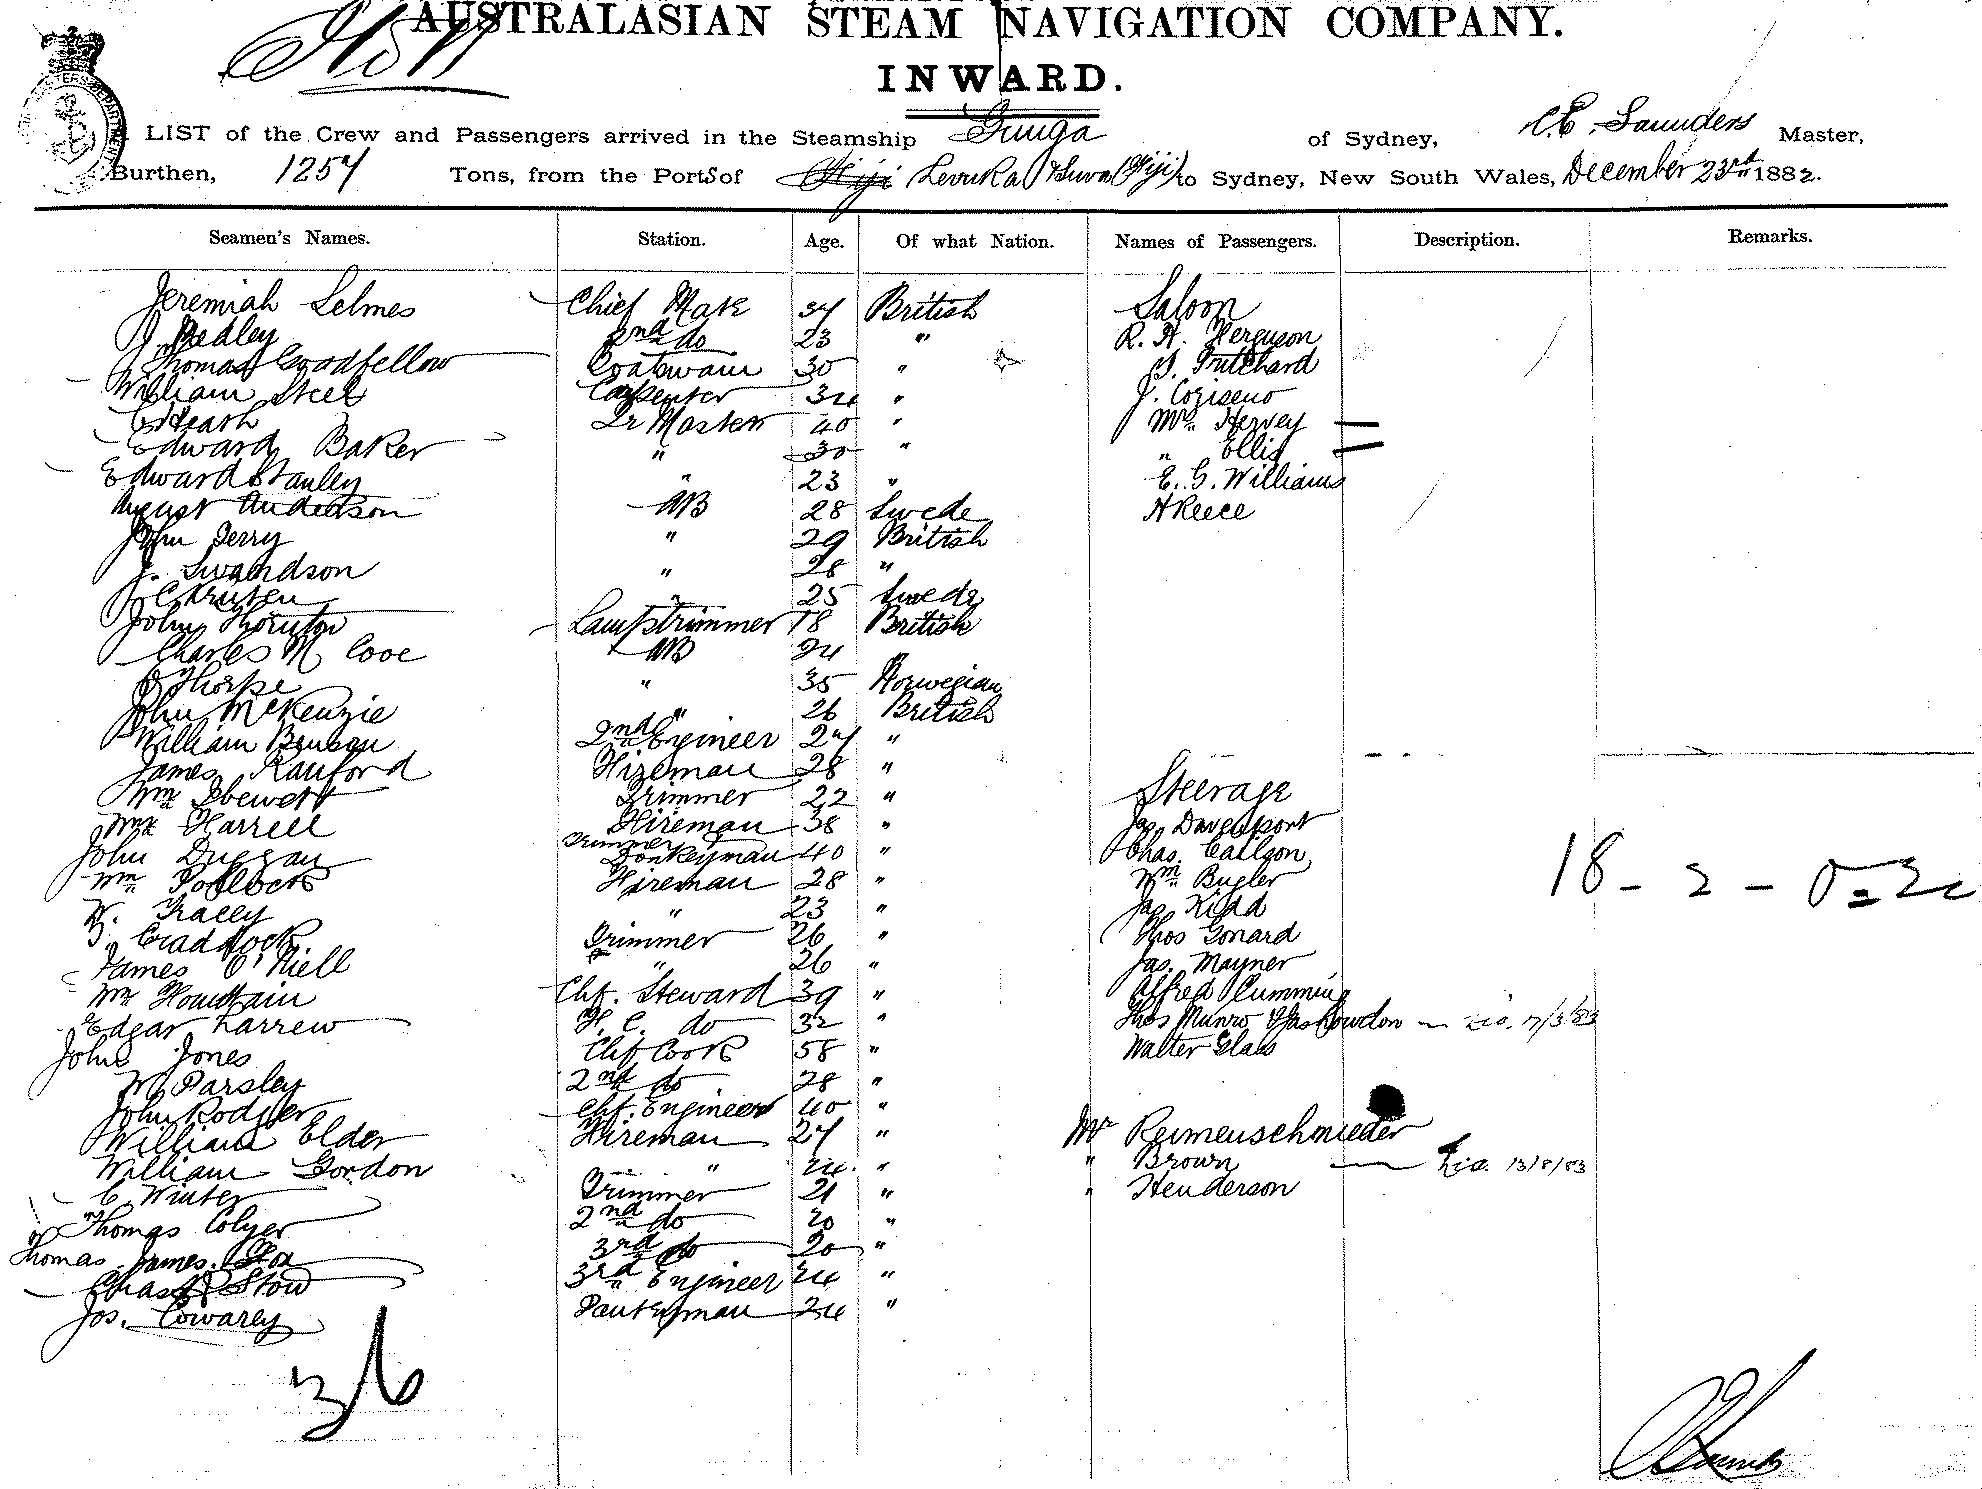 AUSTRALASIAN STEAM NAVIGATION COMPANY.
INWARD.
LIST of the Crew and Passengers arrived in the Steamship Gunga of Sydney, C.E. Saunders Master,
Burthen, 1257 Tons, from the Ports of Fiji Levuka & Suva (Fiji) to Sydney, New South Wales, December 23rd 1882.
Seamen's Names. Station. Age. Of what Nation. Names of Passengers. Description. Remarks.
Jeremiah Selmes Chief Mate 37 British Saloon
J. Medley 2nd do 23 " R. H. Ferguson
Thomas Goodfellow Boatswain 30 " Pritchard
William Steel Carpenter 34 " J.
Heath Qr Master 40 " Mrs Hervey
Edward Baker " 30 " " Ellis
Edward Stanley " 23 " E. G. Williams
August Anderson AB 28 Swede H Reece
John Perry " 29 British
J. Swandson " 28 "
" 25 Swede
John Thornton Lamptrimmer 18 British
Charles M Cove AB 24 "
Thorpe " 35 Norwegian
John McKenzie " 26 British
William 2nd Engineer 27 "
James Ranford Fireman 28 "
Wm Trimmer 22 " Steerage
Wm Harrell Fireman 38 " Jas. Davenport
John Duggan Trimmer Donkeyman 40 " Chas. Carlson
Wm Pollock Fireman 28 " Wm Bugler
W. Tracey " 23 " Jas. Kidd
T. Craddock Trimmer 26 " Thos Gonard
James O'Niell " 26 " Jas. Mayner
Wm Fountain Chf. Steward 39 " Alfred Cumming
Edgar Farrew F. C. do 32 " Thos Munro 7/3/83
John Jones Chf Cook 58 " Walter Glass
W. Parsley 2nd do 28 "
John Rodger Chf. Engineer 40 "
William Elder Fireman 27 " Mr Reimenschnieder
William Gordon " 24 " " Brown 13/8/83
C. Winter Trimmer 21 " " Henderson
Thomas Colyer 2nd do 20 "
Thomas James Fox 3rd do 20 "
Chas Stow 3rd Engineer 24 "
Jos. Cowarey Pantryman 24 "
18 - 2 - 0 =
36